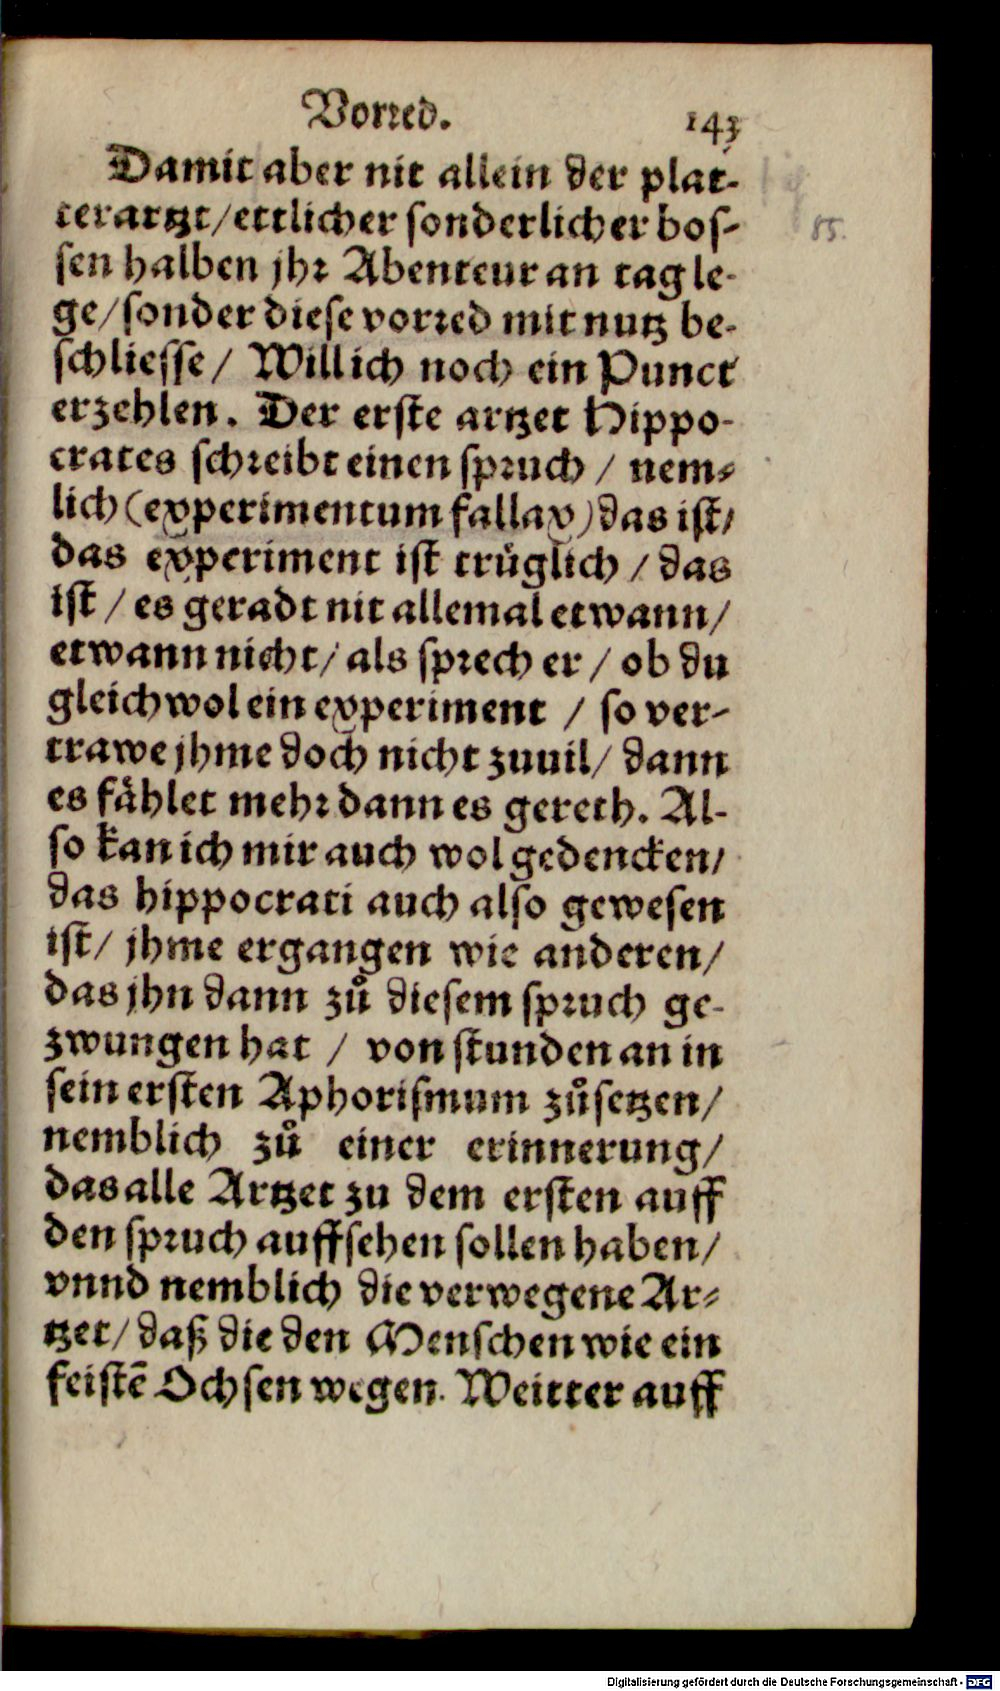 Vorred. 143
Damit aber nit allein der plat-
terartzt/ettlicher sonderlicher bos-
sen halben jhr Abenteur an tag le-
ge/sonder diese vorred mit nutz be-
schliesse / Will ich noch ein Punct
erzehlen. Der erste artzet Hippo-
crates schreibt einen spruch / nem-
lich (experimentum fallax) das ist/
das experiment ist trüglich / das
ist / es geradt nit allemal etwann/
etwann nicht/ als sprech er / ob du
gleichwol ein experiment / so ver-
trawe jhme doch nicht zuuil/ dann
es fåhlet mehr dann es gereth. Al-
so kan ich mir auch wol gedencken/
das hippocrati auch also gewesen
ist/ jhme ergangen wie anderen/
das jhn dann zů diesem spruch ge-
zwungen hat / von stunden an in
sein ersten Aphorismum zůsetzen/
nemblich zů einer erinnerung/
das alle Artzet zu dem ersten auff
den spruch auffsehen sollen haben/
vnnd nemblich die verwegene Ar-
tzet/ daß die den Menschen wie ein
feistē Ochsen wegen. Weitter auff
85.
Digitalisierung gefördert durch die Deutsche Forschungsgemeinschaft - DFG